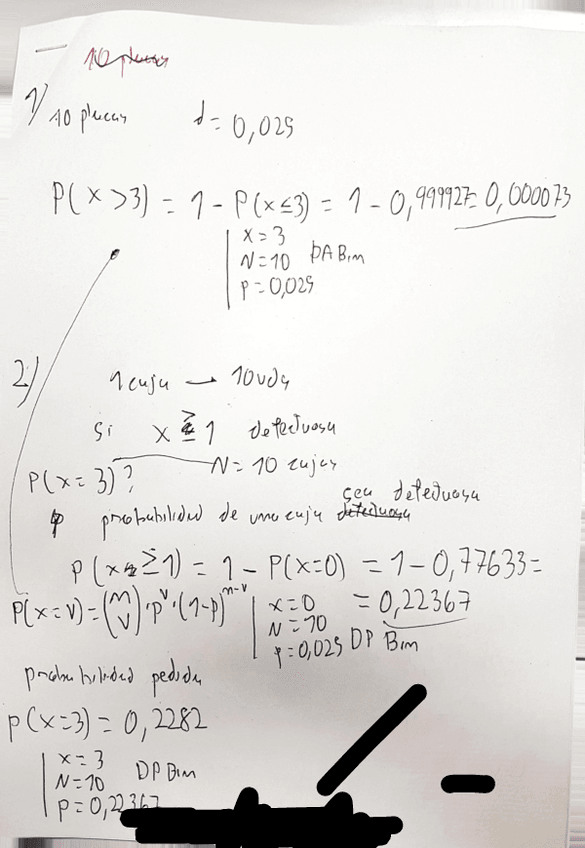 10 placas
1) 10 placas d = 0,025
P(x > 3) = 1 - P(x ≤ 3) = 1 - 0,999927 = 0,000073
x = 3
N = 10 DA Bim
p = 0,025
2) 1 caja → 10 uds
Si x ≥ 1 defectuosa
N = 10 cajas
P(x = 3)?
probabilidad de una caja sea defectuosa
P(x ≥ 1) = 1 - P(x=0) = 1 - 0,77633 =
= 0,22367
P(x=v) = (n v) · p^v · (1-p)^n-v
x = 0
N = 10
p = 0,025 DP Bim
probabilidad pedida
p(x=3) = 0,2282
x = 3
N = 10 DP Bim
p = 0,22367